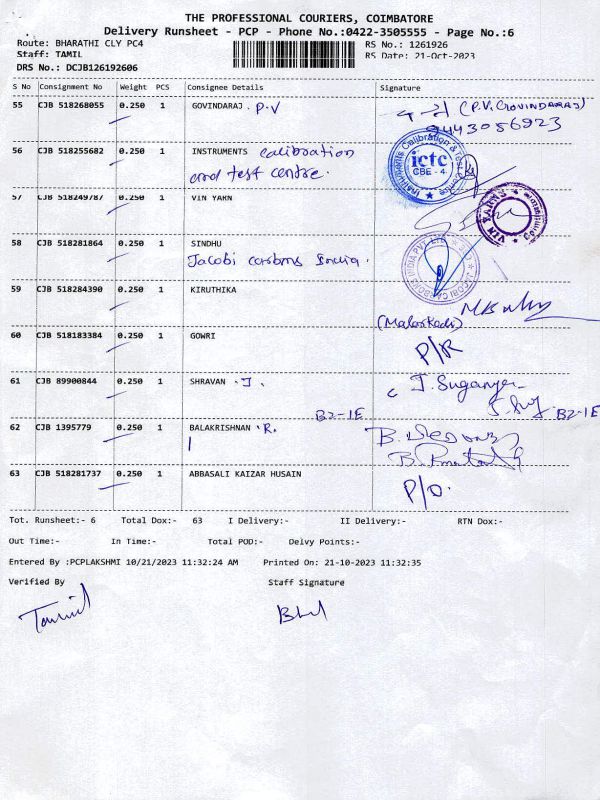 THE PROFESSIONAL COURIERS, COIMBATORE
Delivery Runsheet - PCP - Phone No.:0422-3505555 - Page No.:6
Route: BHARATHI CLY PC4 RS No.: 1261926
Staff: TAMIL RS Date: 21-Oct-2023
DRS No.: DCJB126192606
S No Consignment No Weight PCS Consignee Details Signature
55 CJB 518268055 0.250 1 GOVINDARAJ . P.V (P.V. GOVINDARAJ)
9443056923
56 CJB 518255682 0.250 1 INSTRUMENTS calibration
and test centre.
ictc
CBE - 4
57 CJB 518249787 0.250 1 VIN YARN
VIN YARNS
58 CJB 518281864 0.250 1 SINDHU
Jacobi carbons India.
JACOBI CARBONS INDIA PVT LTD
59 CJB 518284390 0.250 1 KIRUTHIKA
(Malarkodi)
60 CJB 518183384 0.250 1 GOWRI
P/R
61 CJB 89900844 0.250 1 SHRAVAN . J.
B2-1E B2-1E
62 CJB 1395779 0.250 1 BALAKRISHNAN .R.
63 CJB 518281737 0.250 1 ABBASALI KAIZAR HUSAIN
P/O.
Tot. Runsheet:- 6 Total Dox:- 63 I Delivery:- II Delivery:- RTN Dox:-
Out Time:- In Time:- Total POD:- Delvy Points:-
Entered By :PCPLAKSHMI 10/21/2023 11:32:24 AM Printed On: 21-10-2023 11:32:35
Verified By Staff Signature